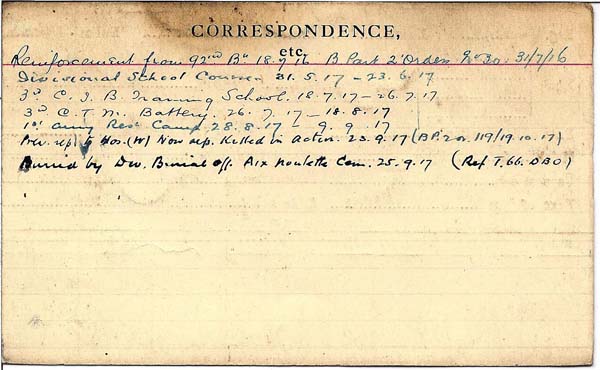 CORRESPONDENCE,
etc.
Reinforcement from 92nd Bn 18.7.16 B Part 2 Orders No 30. 31/7/16
Divisional School Course 31.5.17 - 23.6.17
3rd C.I.B Training School. 18.7.17 - 26.7.17
3rd C.T.M. Battery. 26.7.17 - 18.8.17
1st Army Rest Camp 28.8.17 - 9.9.17
Prev. rep. to Hos. (W) Now rep. Killed in Action. 23.9.17 (BP. 2 or. 119/19.10.17)
Buried by Div. Burial Off. Aix Noulette Cem. 25.9.17 (Ref T.66. DBO)